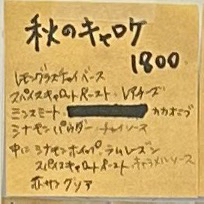 秋のキャロケ
1800
レモングラスチャイベース
スパイスキャロットペースト・レアチーズ
ミンスミート・ カカオニブ
シナモンパウダー チャイソース
中に シナモンホイップ ラムレーズン
スパイスキャロットペースト キャラメルソース